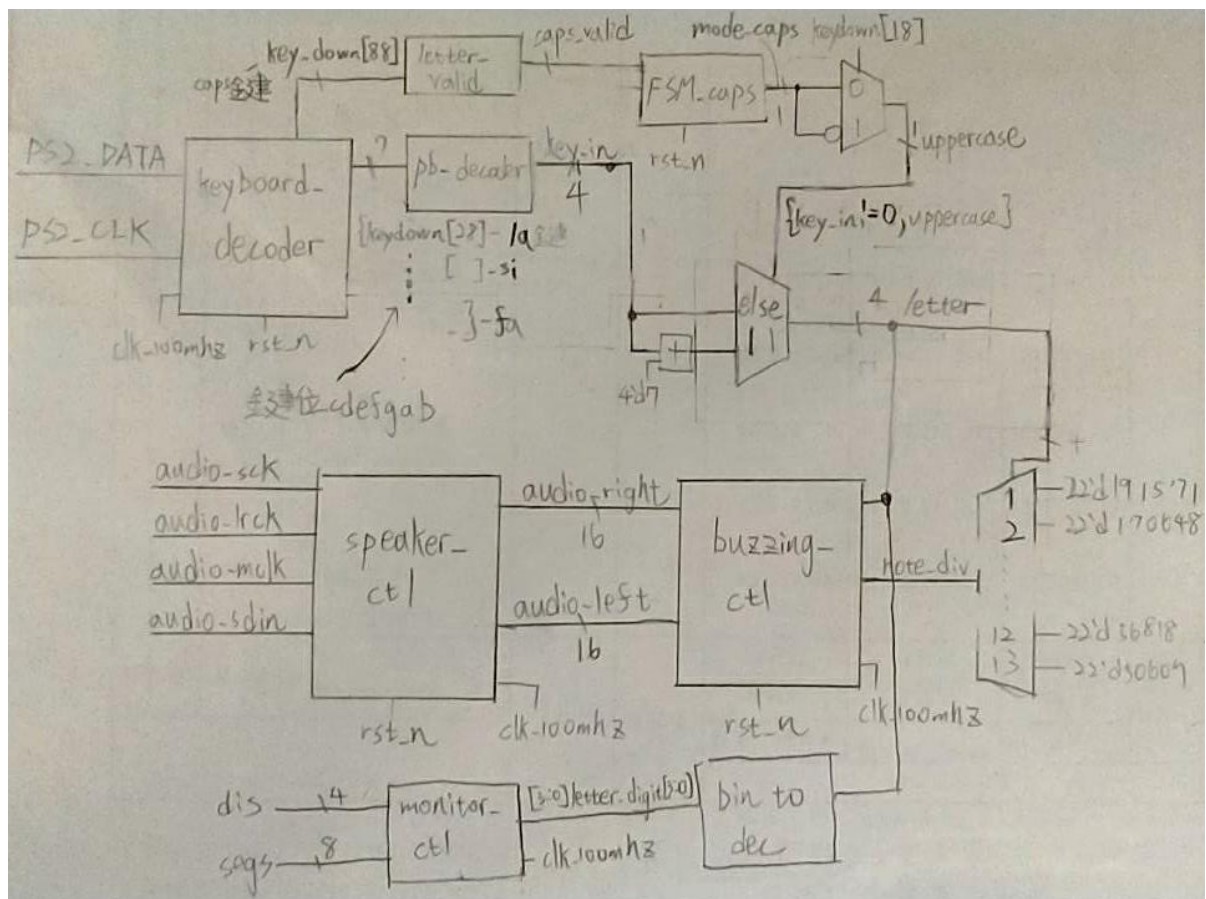 key_down[88]
caps鍵
letter_valid
caps_valid
FSM_caps
rst_n
mode_caps
keydown[18]
1
0
1
1
uppercase
PS2_DATA
PS2_CLK
keyboard_decoder
clk_100mhz
rst_n
7
pb_decoder
key_in
4
{keydown[28]-la鍵
[ ]-si
}-fa
鍵位cdefgab
{key_in!=0,uppercase}
else
11
+
4'd7
4
letter
audio_sck
audio_lrck
audio_mclk
audio_sdin
speaker_ctl
rst_n
clk_100mhz
audio_right
16
audio_left
16
buzzing_ctl
rst_n
clk_100mhz
note_div
1
2
12
13
22'd191571
22'd170648
dis
4
segs
8
monitor_ctl
clk_100mhz
bin to dec